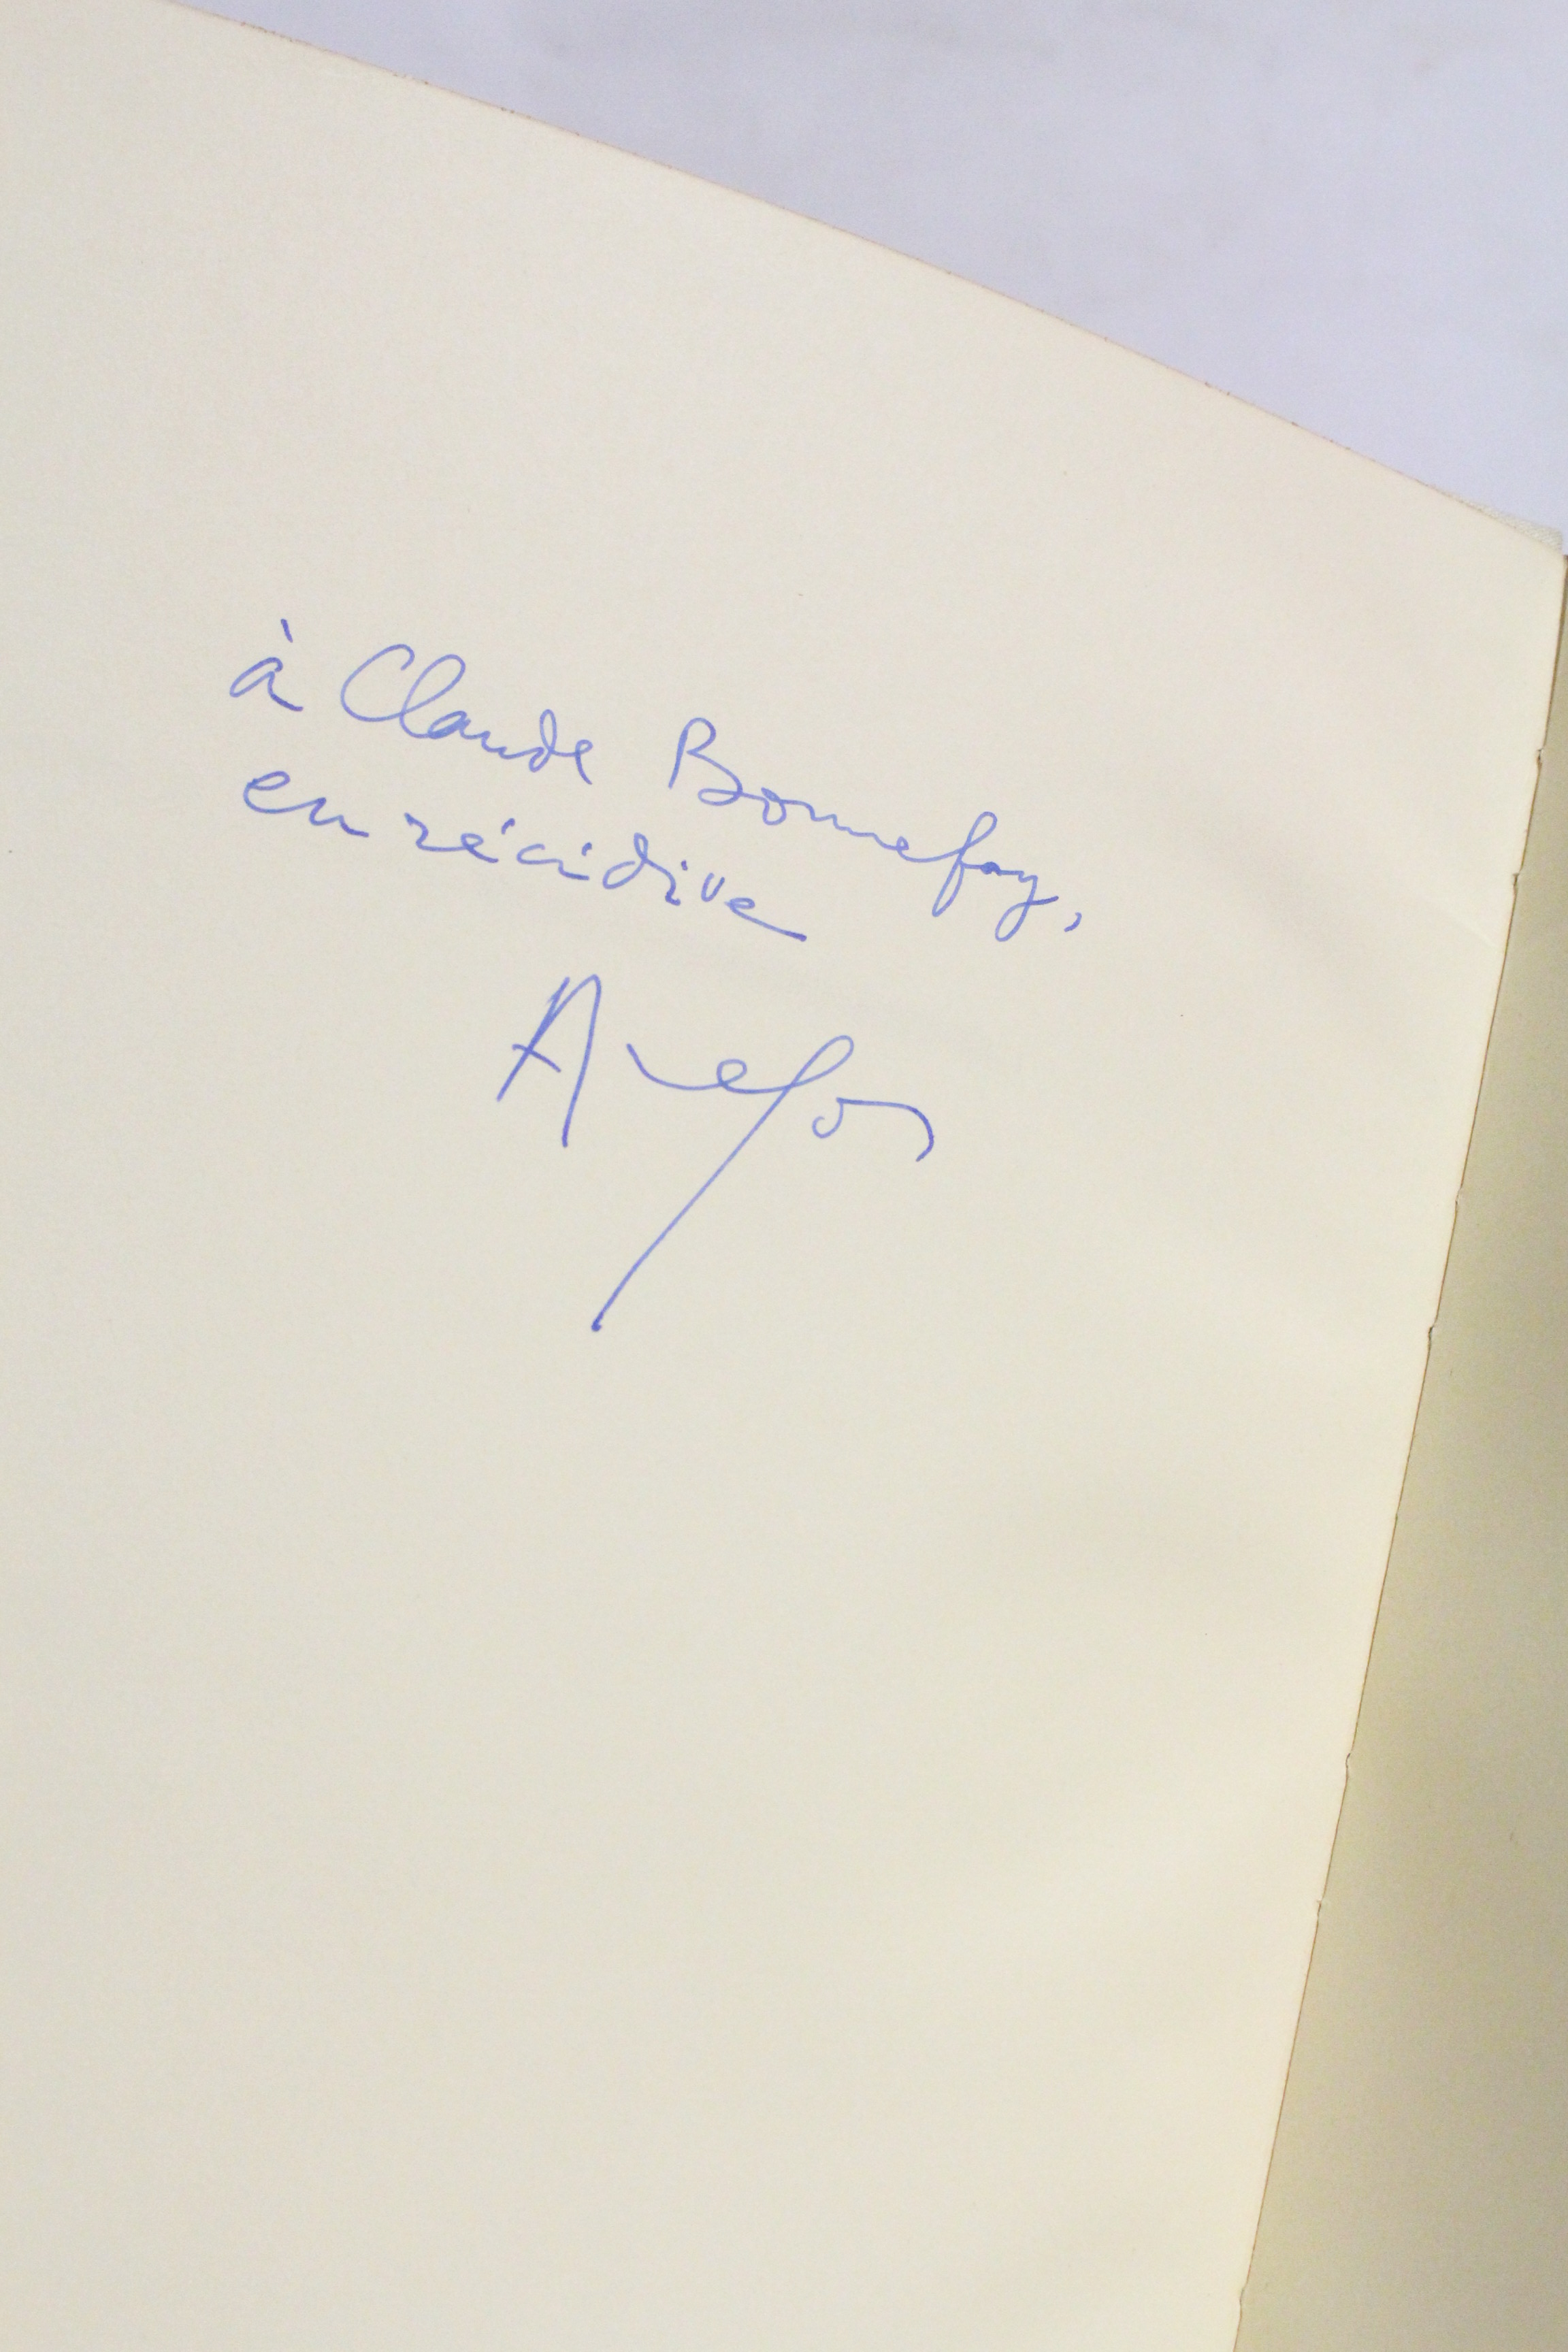 à Claude Bonnefoy,
en récidive
Aragon